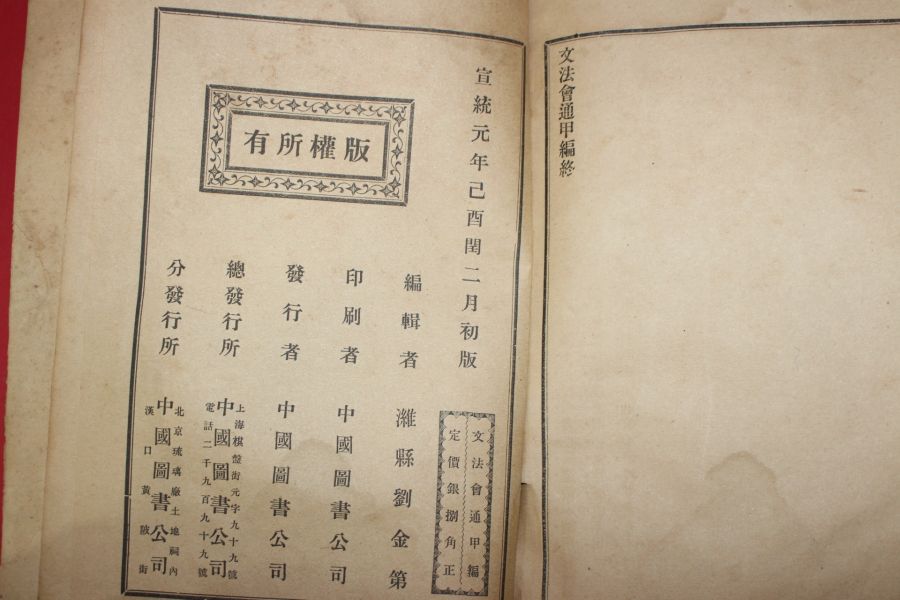 文法會通甲編終
宣統元年己酉閏二月初版
文法會通甲編
定價銀捌角正
編輯者 濰縣劉金第
印刷者 中國圖書公司
發行者 中國圖書公司
總發行所
上海棋盤街元字九十九號
中國圖書公司
電話二千九百九十九號
分發行所
北京琉璃廠土地祠內
中國圖書公司
漢口黃陂街
版權所有